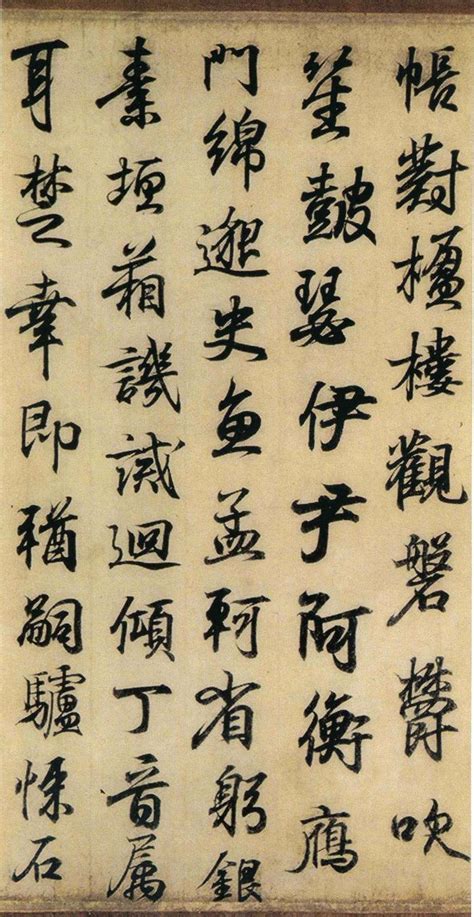 帳對楹樓觀磐欝吹
笙鼓瑟伊尹阿衡鴈
門綿邈史魚孟軻省躬銀
素垣葙譏誡迴傾丁音属
耳楚幸即猶嗣驢悚石